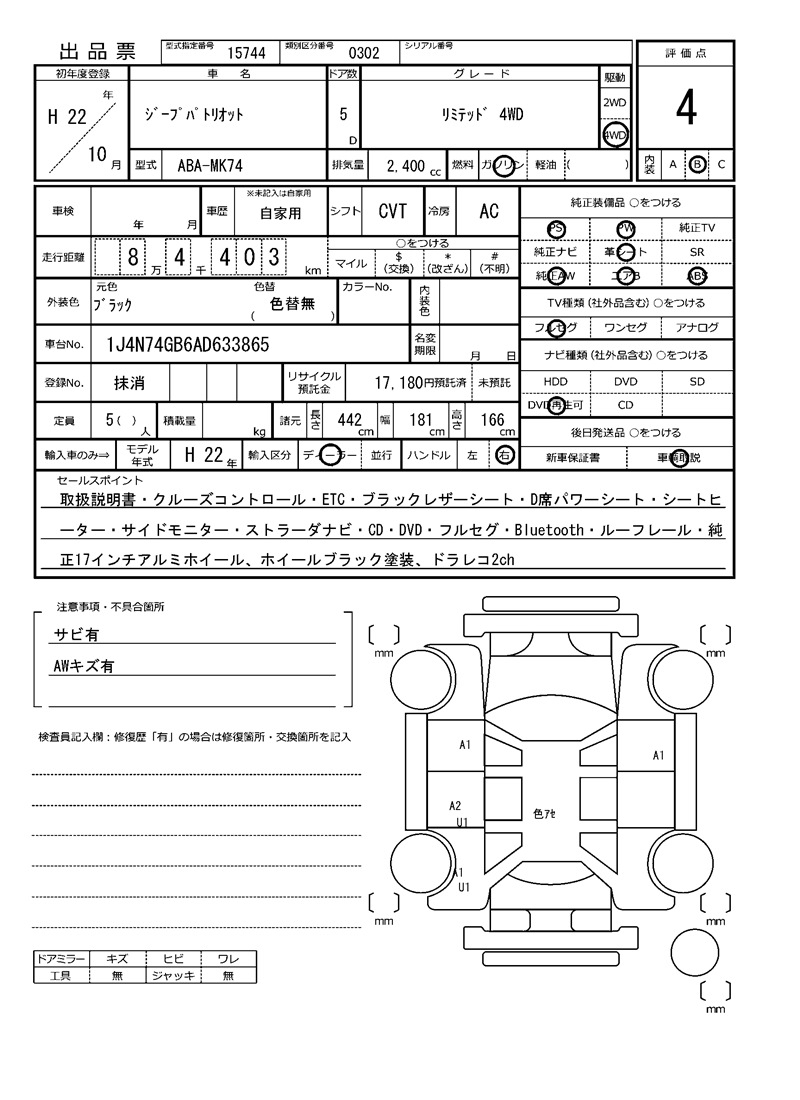 出品票 型式指定番号 15744 類別区分番号 0302 シリアル番号
評価点
初年度登録 車名 ドア数 グレード 駆動
H 22 年 10 月 ジープパトリオット 5 D リミテッド 4WD 2WD 4WD
4
型式 ABA-MK74 排気量 2,400 cc 燃料 ガソリン 軽油 ( ) 内装 A B C
車検 年 月 車歴 ※未記入は自家用 自家用 シフト CVT 冷房 AC
純正装備品 ○をつける
PS PW 純正TV
走行距離 8 万 4 千 4 0 3 km ○をつける マイル $(交換) *(改ざん) #(不明)
純正ナビ 革シート SR
純正AW エアB ABS
外装色 元色 ブラック 色替 ( 色替無 ) カラーNo. 内装色
TV種類(社外品含む)○をつける
フルセグ ワンセグ アナログ
車台No. 1J4N74GB6AD633865 名変期限 月 日
ナビ種類(社外品含む)○をつける
登録No. 抹消 リサイクル預託金 17,180円預託済 未預託
HDD DVD SD
DVD再生可 CD
定員 5( )人 積載量 kg 諸元 長さ 442 cm 幅 181 cm 高さ 166 cm
後日発送品 ○をつける
輸入車のみ⇒ モデル年式 H 22 年 輸入区分 ディーラー 並行 ハンドル 左 右
新車保証書 車輌取説
セールスポイント
取扱説明書・クルーズコントロール・ETC・ブラックレザーシート・D席パワーシート・シートヒ
ーター・サイドモニター・ストラーダナビ・CD・DVD・フルセグ・Bluetooth・ルーフレール・純
正17インチアルミホイール、ホイールブラック塗装、ドラレコ2ch
注意事項・不具合箇所
サビ有
AWキズ有
検査員記入欄：修復歴「有」の場合は修復箇所・交換箇所を記入
mm mm
A1 A1
A2
U1
色アセ
A1
U1
mm mm
mm
ドアミラー キズ ヒビ ワレ
工具 無 ジャッキ 無